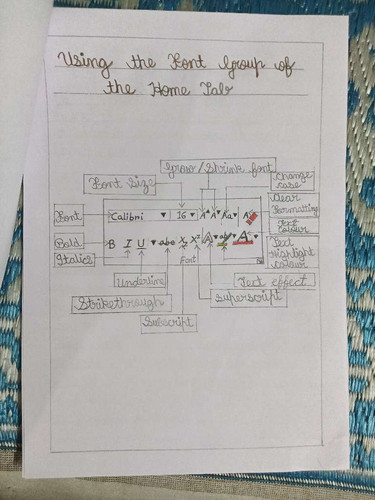 Using the Font Group of
the Home Tab
Grow/Shrink font
Font Size
Change
case
Clear
Formatting
Font
Calibri ▾ 16 ▾ A A Aa▾ A
Text
Colour
Bold
B I U ▾ abc X₂ X² A▾ ab▾ A▾
Text
Highlight
Colour
Italics
Font
Underline
Text effect
Strikethrough
Superscript
Subscript